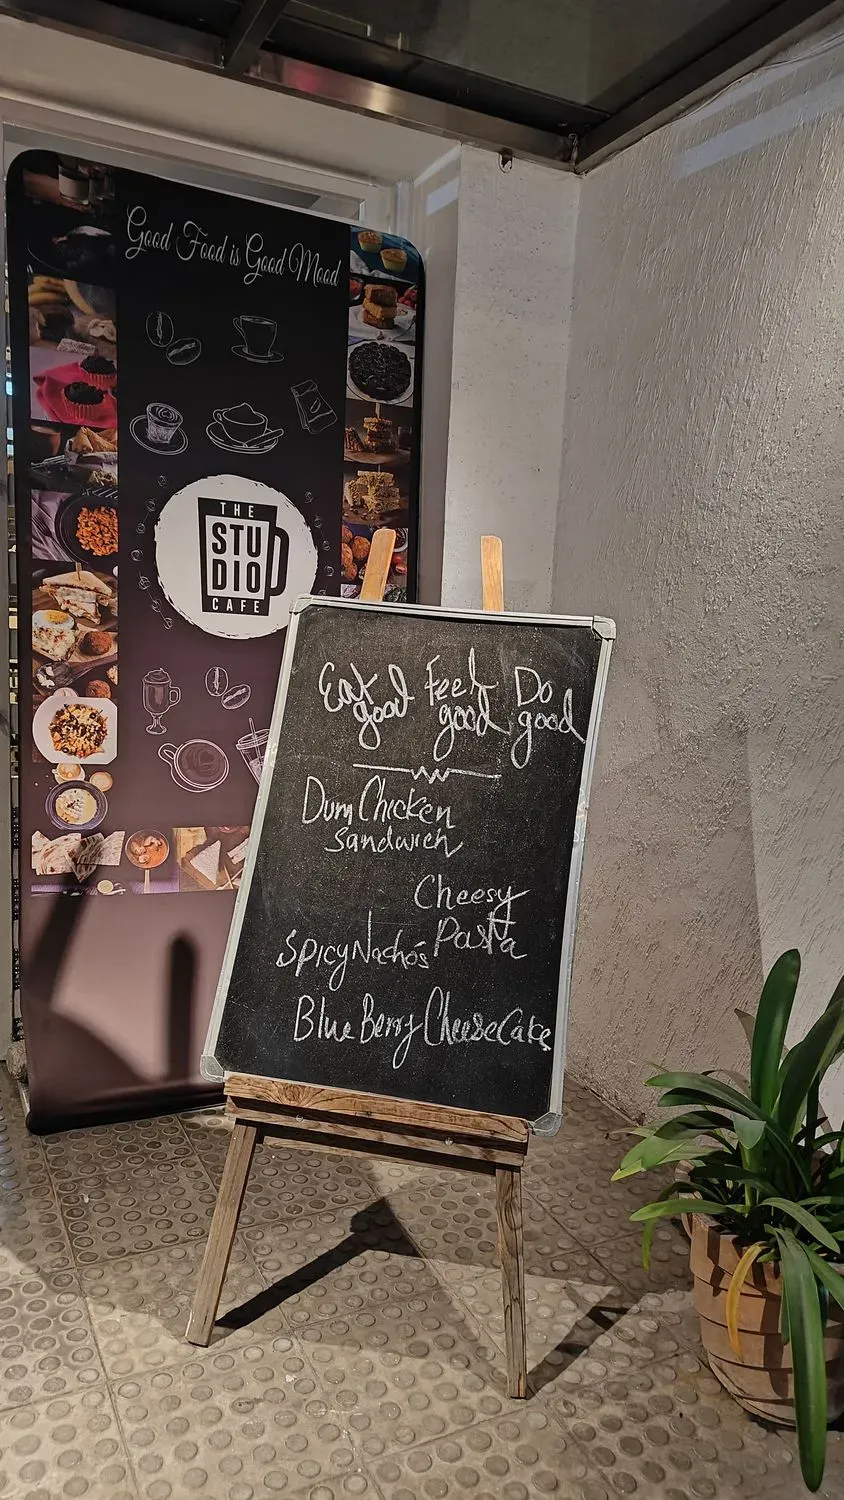 Good Food is Good Mood
THE
STU
DIO
CAFE
Eat Feel Do
good good good
Dum Chicken
Sandwich
Cheesy
Pasta
Spicy Nachos
Blue Berry CheeseCake